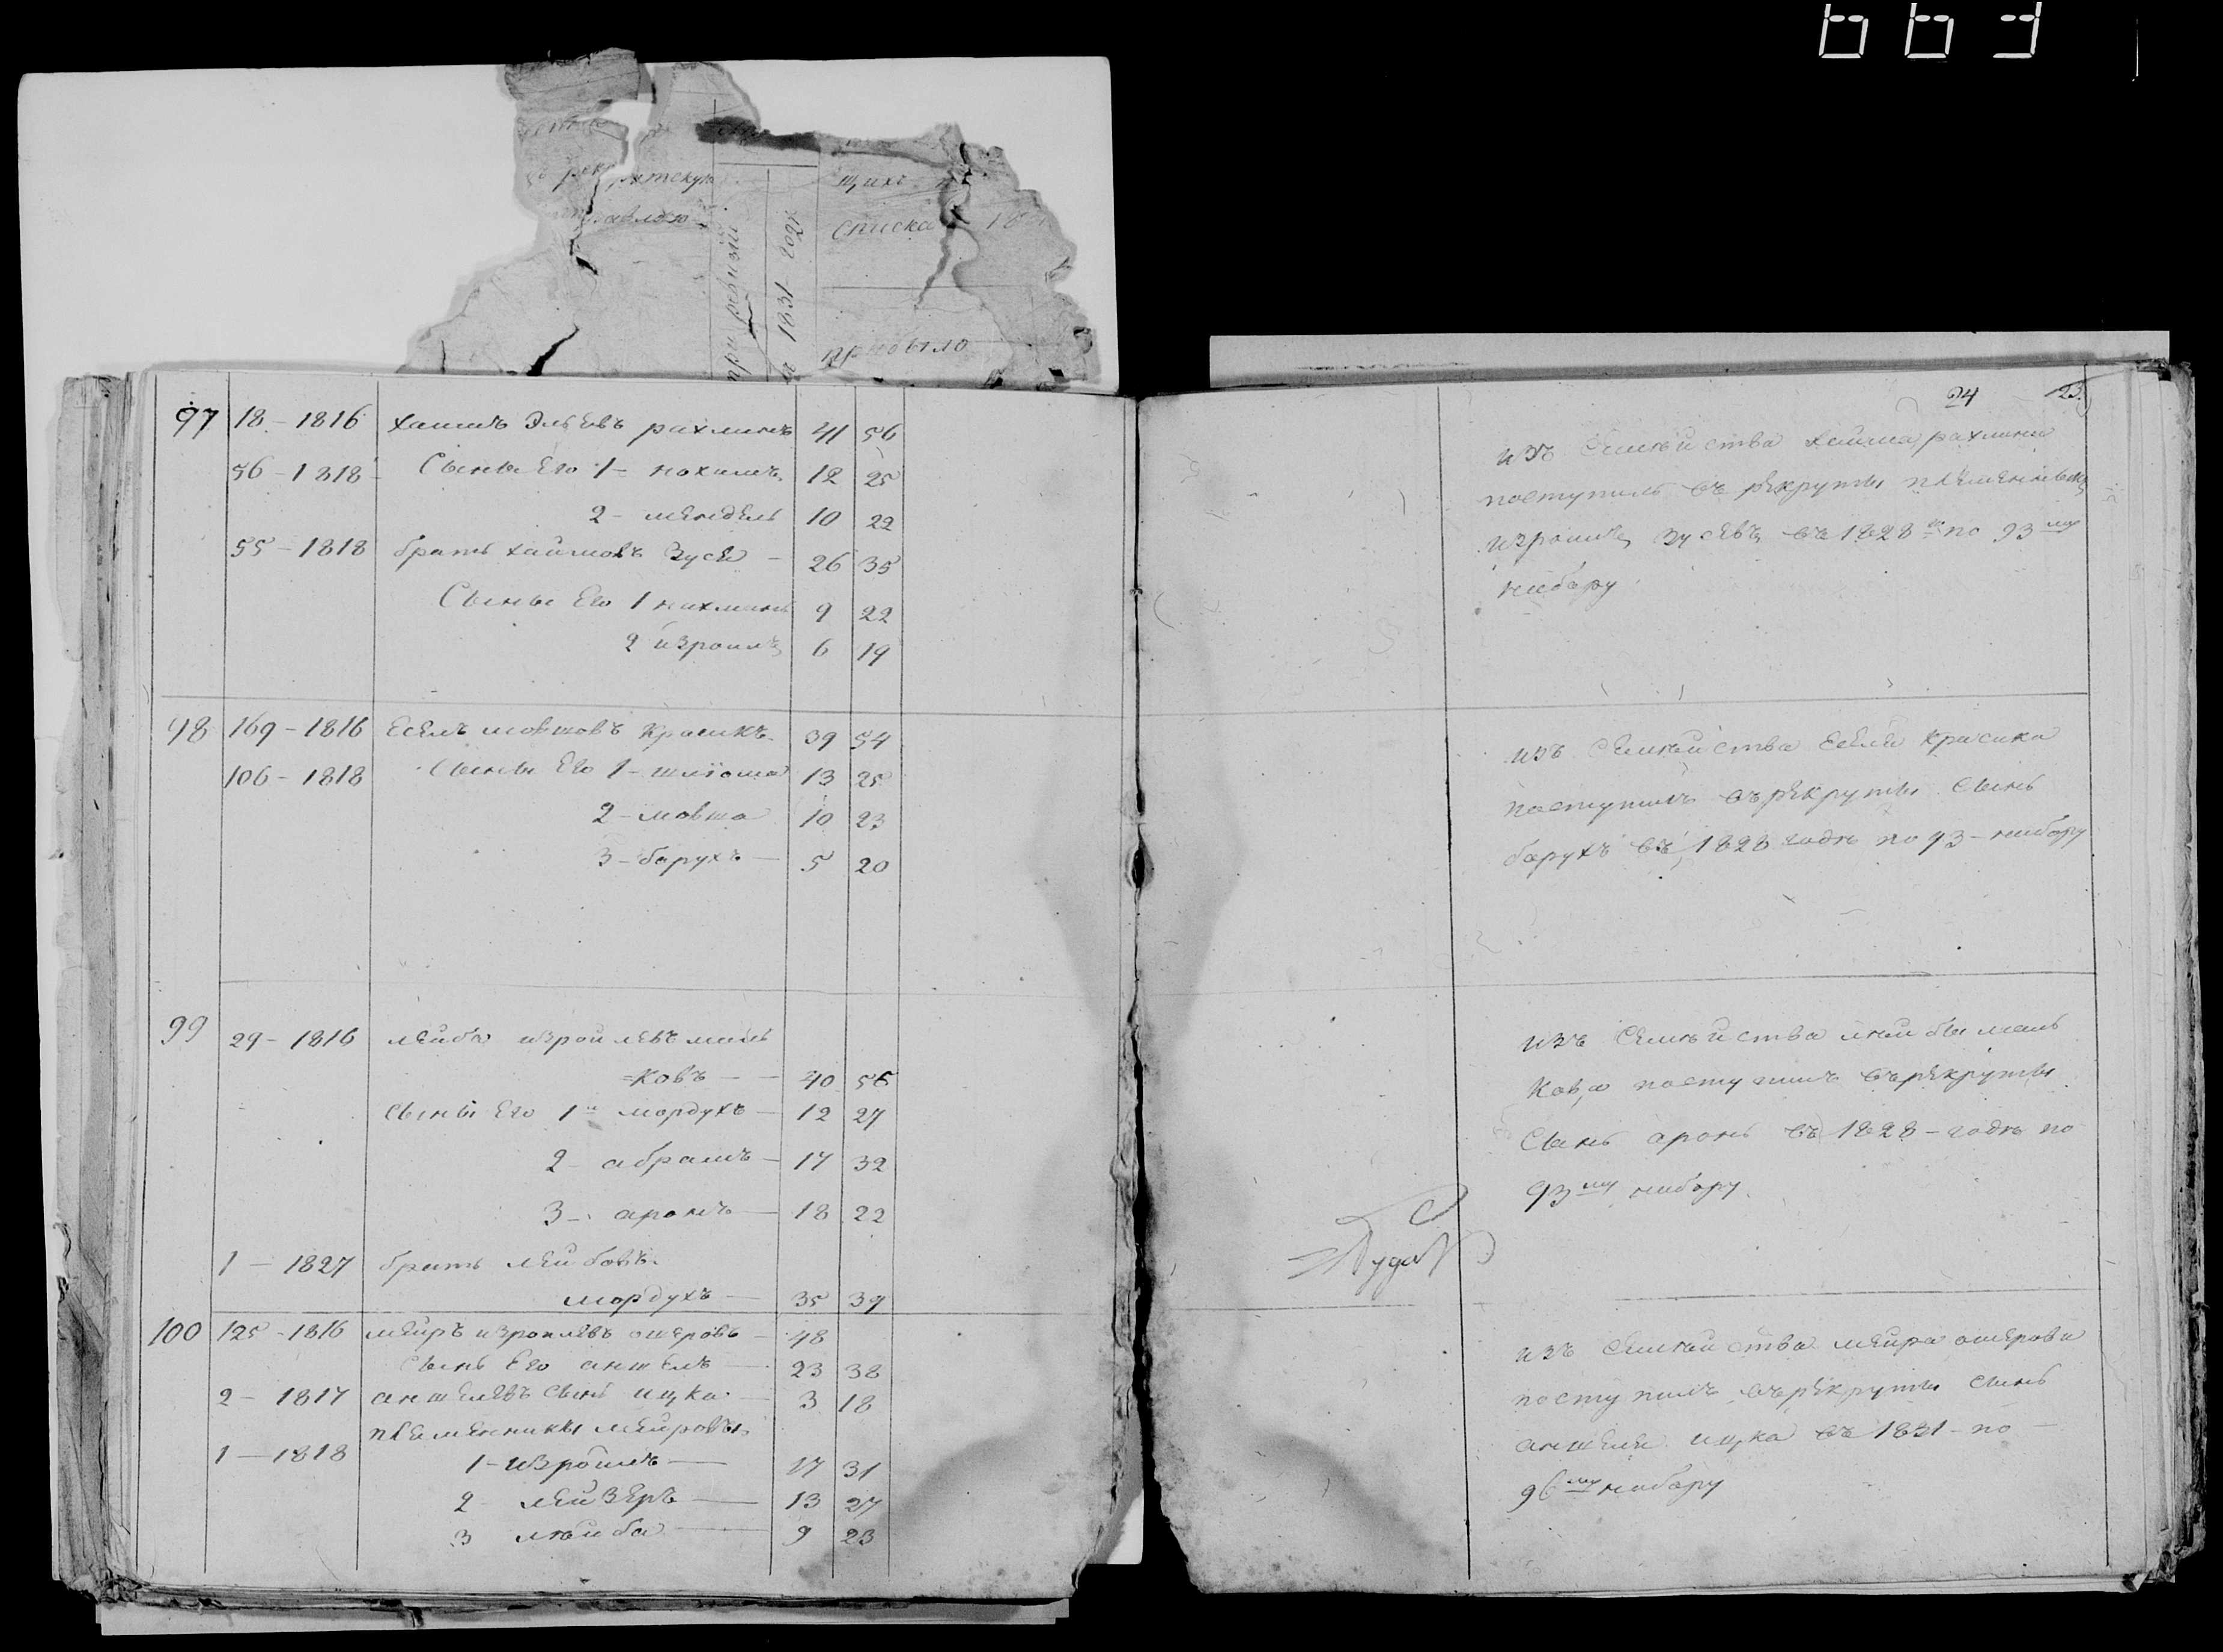 щихъ
списка 18
при ревизии
1831 года
прибыло
97 18 - 1816 хаимъ Эльевъ рахлинъ 41 56
56 - 1818 Сыны Его 1 - нохимъ 12 25
2 - мендель 10 22
55 - 1818 братъ хаимовъ Зусь - 26 35
Сыны Его 1 нахманъ 9 22
2 израиль 6 19
98 169 - 1816 Есель мовшовъ красикъ 39 54
106 - 1818 Сыны Его 1 - шліома 13 25
2 - мовша 10 23
3 - борухъ - 5 20
99 29 - 1816 лейба израилевъ маль
=ковъ - 40 56
Сыны Его 1й мордухъ - 12 27
2 - абрамъ - 17 32
3 - аронъ - 18 22
1 - 1827 братъ лейбовъ
мордухъ - 35 39
100 125 - 1816 меиръ израилевъ ошеровъ - 48
Сынъ Его аншель - 23 38
2 - 1817 аншелевъ сынъ ицка 3 18
племянники меировы
1 - 1818 1 - израиль - 17 31
2 - лейзеръ - 13 27
3 лейба - 9 23
24 23
изъ Семейства хаима рахлина
поступилъ въ рекруты племянникъ
израиль Зусевъ въ 1828 по 93му
набору
изъ Семейства Еселя красика
поступилъ въ рекруты Сынъ
борухъ въ 1828 годъ по 93 - набору
изъ Семейства лейбы маль
кова поступилъ въ рекруты
Сынъ аронъ въ 1828 - годъ по
93му набору
изъ Семейства меира ошерова
поступилъ въ рекруты Сынъ
аншеля ицка въ 1831 - по -
96му набору